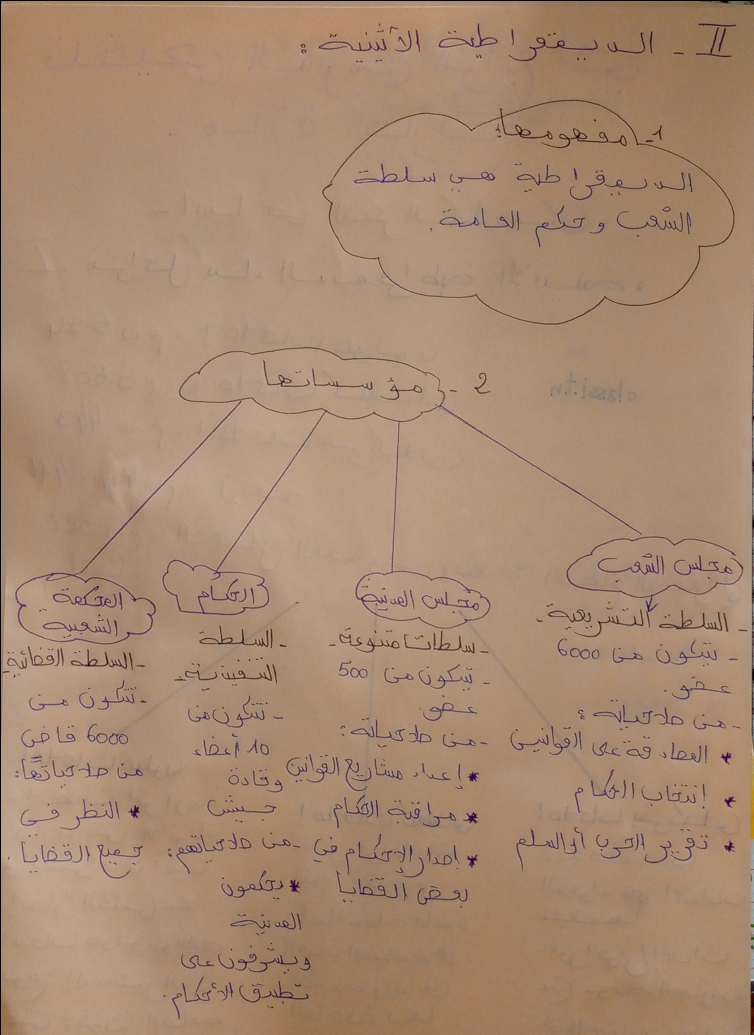 II - الديمقراطية الأثينية :
1- مفهومها:
الديمقراطية هي سلطة
الشعب وحكم العامة.
2 - مؤسساتها
مجلس الشعب
- السلطة التشريعية -
- يتكون من 6000
عضو.
- من صلاحياته :
* المصادقة على القوانين
* إنتخاب الحكام
* تقرير الحرب أو السلم
مجلس المدينة
- سلطات متنوعة -
- يتكون من 500
عضو.
- من صلاحياته :
* إعداد مشاريع القوانين
* مراقبة الحكام
* إصدار الإحكام في
بعض القضايا
الحكام
- السلطة
التنفيذية -
- تتكون من
10 أعضاء
وقادة
جيش
- من صلاحياتهم :
* يحكمون
المدينة
ويشرفون على
تطبيق الأحكام.
المحكمة
الشعبية
- السلطة القضائية -
- تتكون من
6000 قاض
من صلاحياتها :
* النظر في
جميع القضايا.